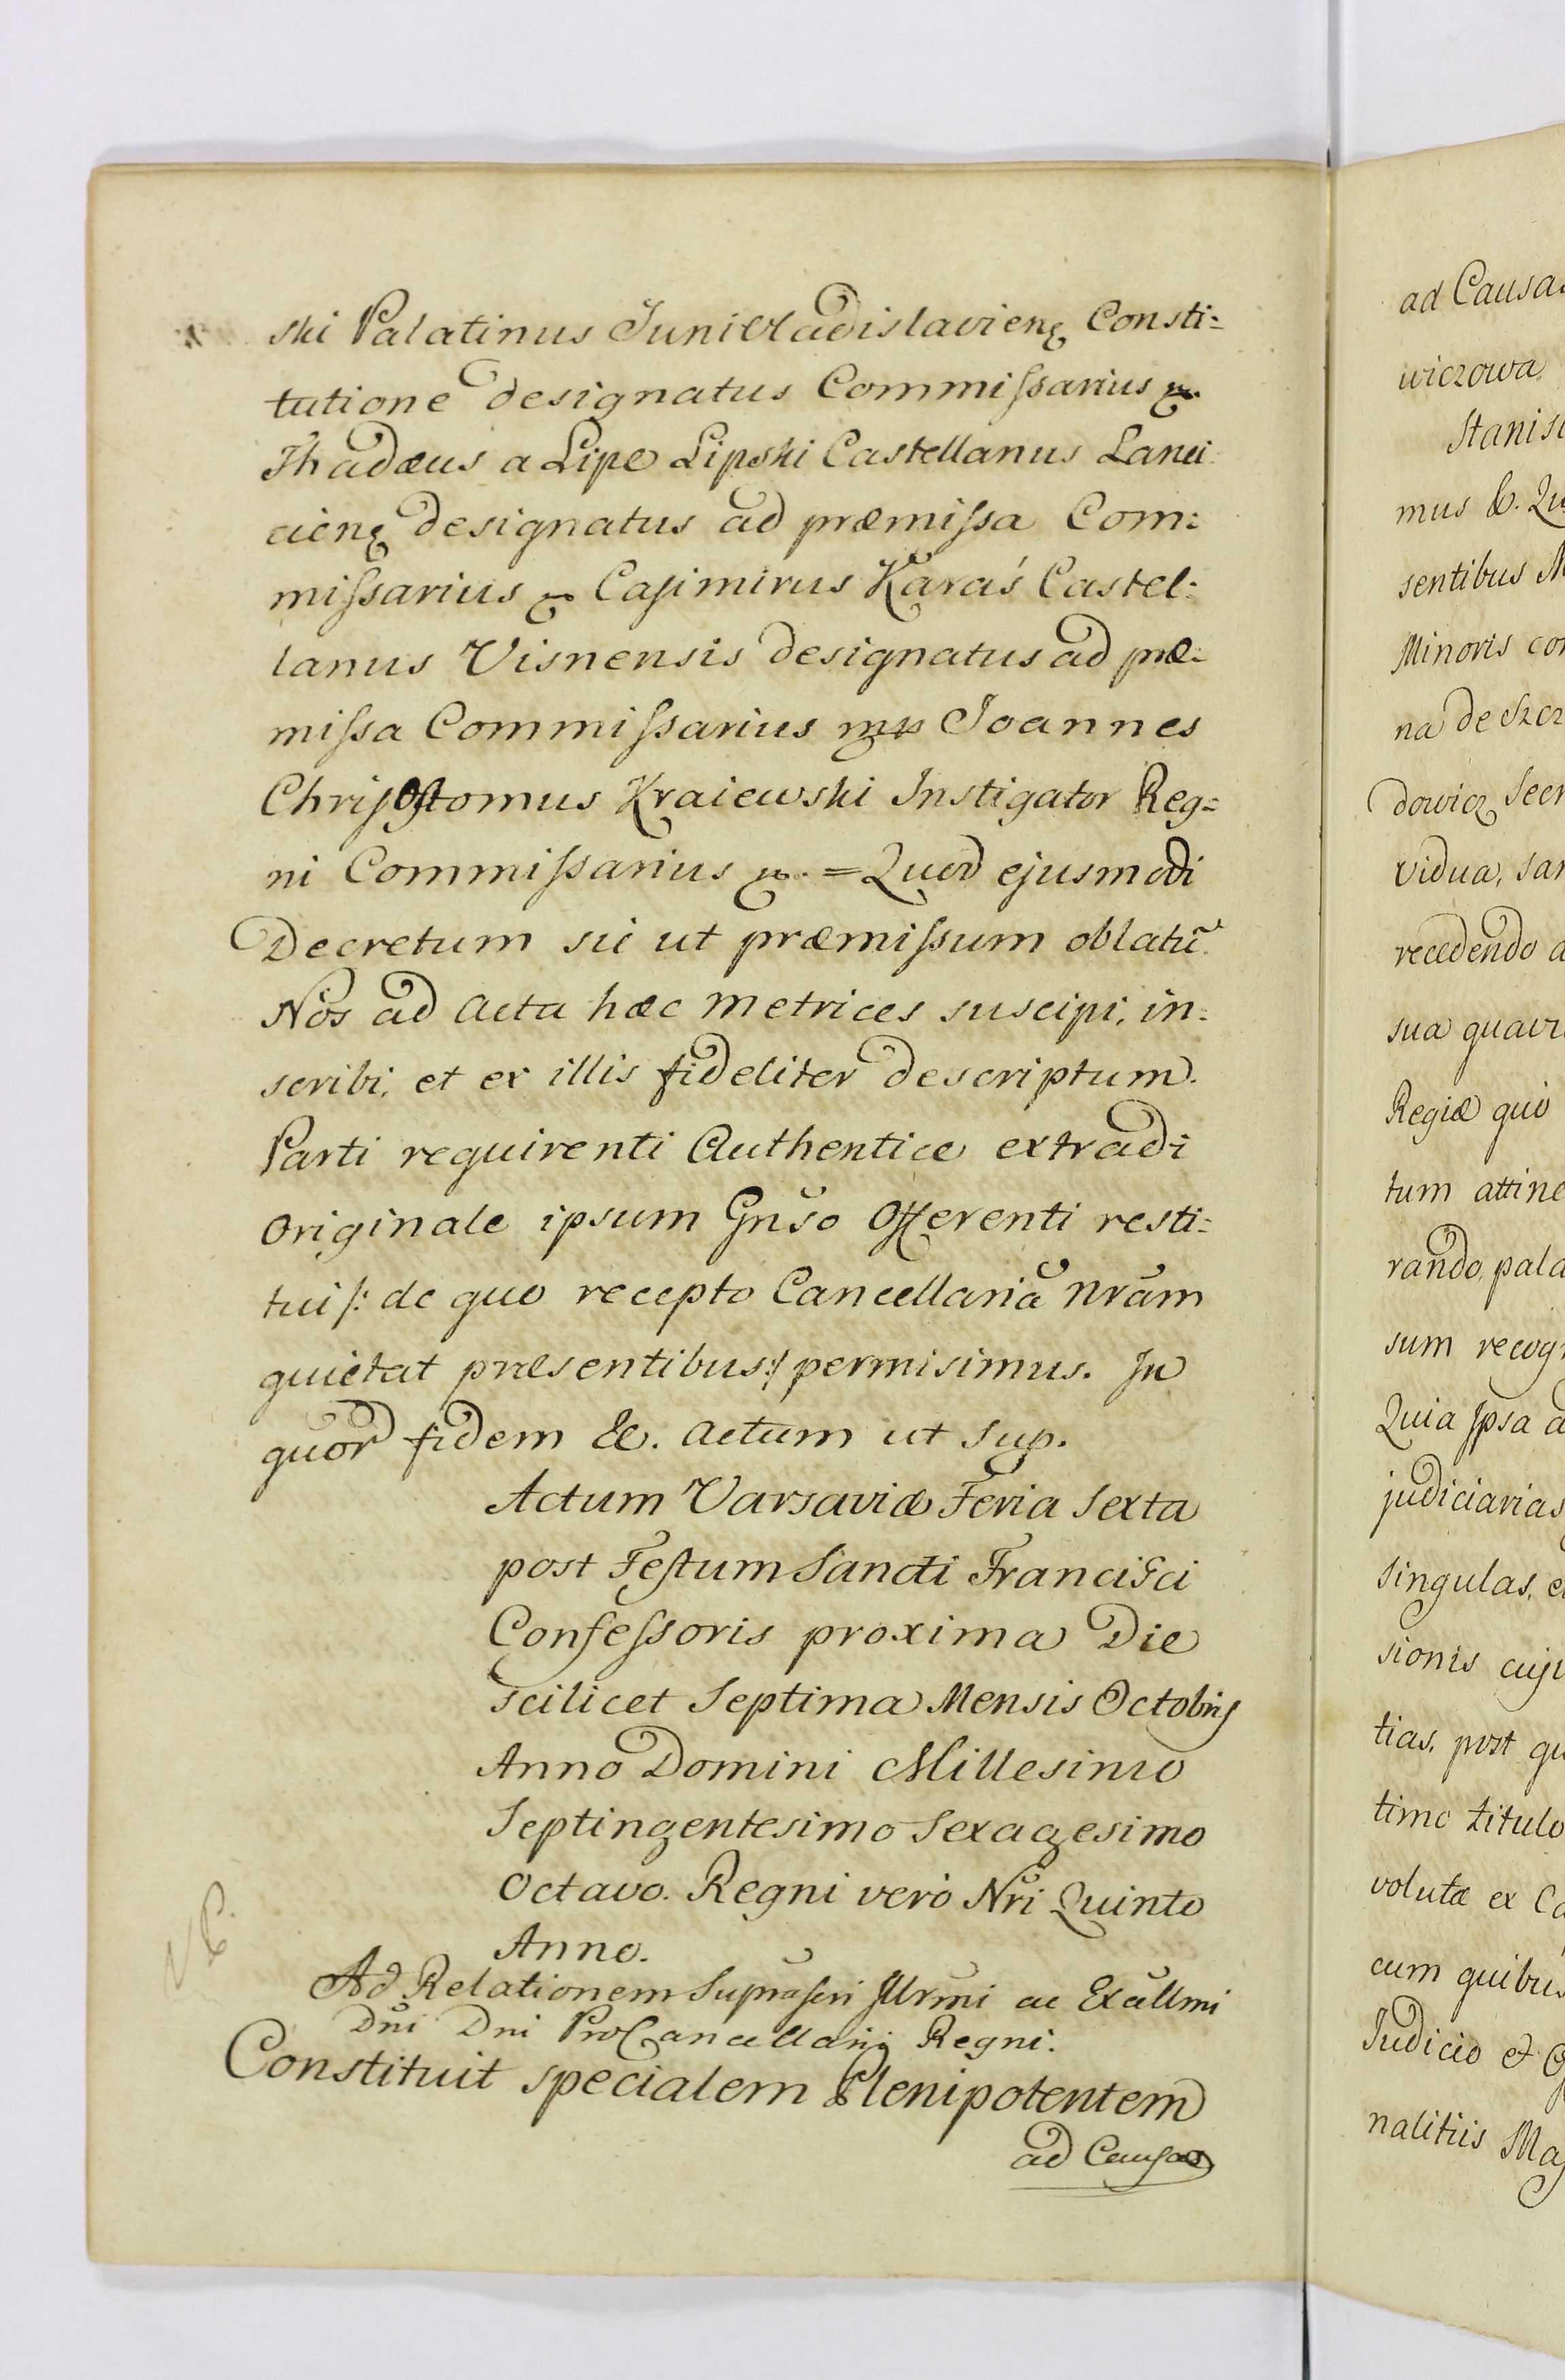 ski Palatinus JuniVladislavienę Consti=
tutione designatus Commiſsarius mp.
Thadæus a Lipe Lipski Castellanus Lanci
cienę designatus ad præmiſsa Com=
miſsarius mp Caſimirus Karaś Castel=
lanus Visnensis designatus ad præ=
miſsa Commiſsarius mp Joannes
Chriſostomus Kraiewski Instigator Reg=
ni Commiſsarius mp. = Quod ejusmodi
Decretum sic ut præmiſsum oblatũ
Nos ad Acta hæc Metrices suscipi, in=
scribi, et ex illis fideliter descriptum.
Parti requirenti Authentice extradi
Originale ipsum Gnšo Offerenti resti=
tui /: de quo recepto Cancellariã Nrãm
quietat præsentibus :/ permisimus. In
quor fidem &c. Actum ut sup.
Actum Varsaviæ Feria Sexta
post Feſtum Sancti Francisci
Confeſsoris proxima Die
scilicet Septima Mensis Octobris
Anno Domini Millesimo
Septingentesimo Sexagesimo
Octavo. Regni verò Nr̃i Quinto
Anno.
Ad Relationem Supraſcri Illr̃mi ac Excllm̃i
Dñi Dni ProCancellarij Regni.
Constituit specialem Plenipotentem
ad Cauſas
ad Causa
wiczowa.
Stanis
mus &c. Qu
sentibus M
Minoris co
na de Szcz
dowicz Secr
vidua, sa
recedendo a
sua quavi
Regiæ quò
tum attine
rando, pala
sum recog
Quia Ipsa a
judiciarias
singulas, e
sionis cuj
tias, post qu
timo titulo
volutæ ex Ca
cum quibus
Judicio et O
nalitiis Maj